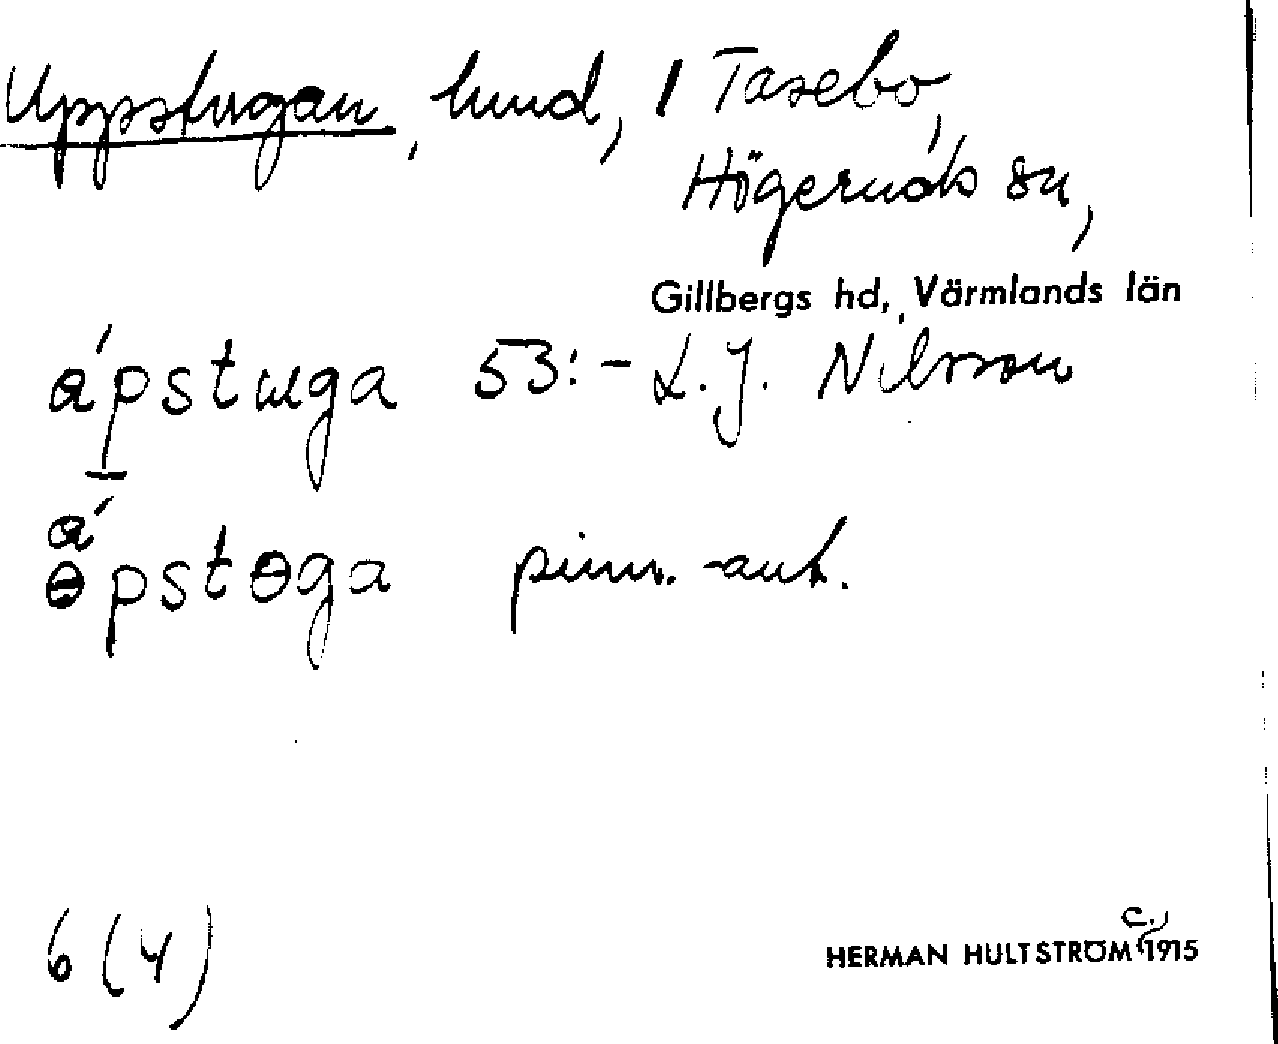 Uppstugan, hmd, / Tasebo,
Högeruds sn,
Gillbergs hd, Värmlands län
ápstuga 53:- L. J. Nilsson
á
ɵpstɵga pinn. -ant.
6 (4)
C.
HERMAN HULTSTRÖM 1915